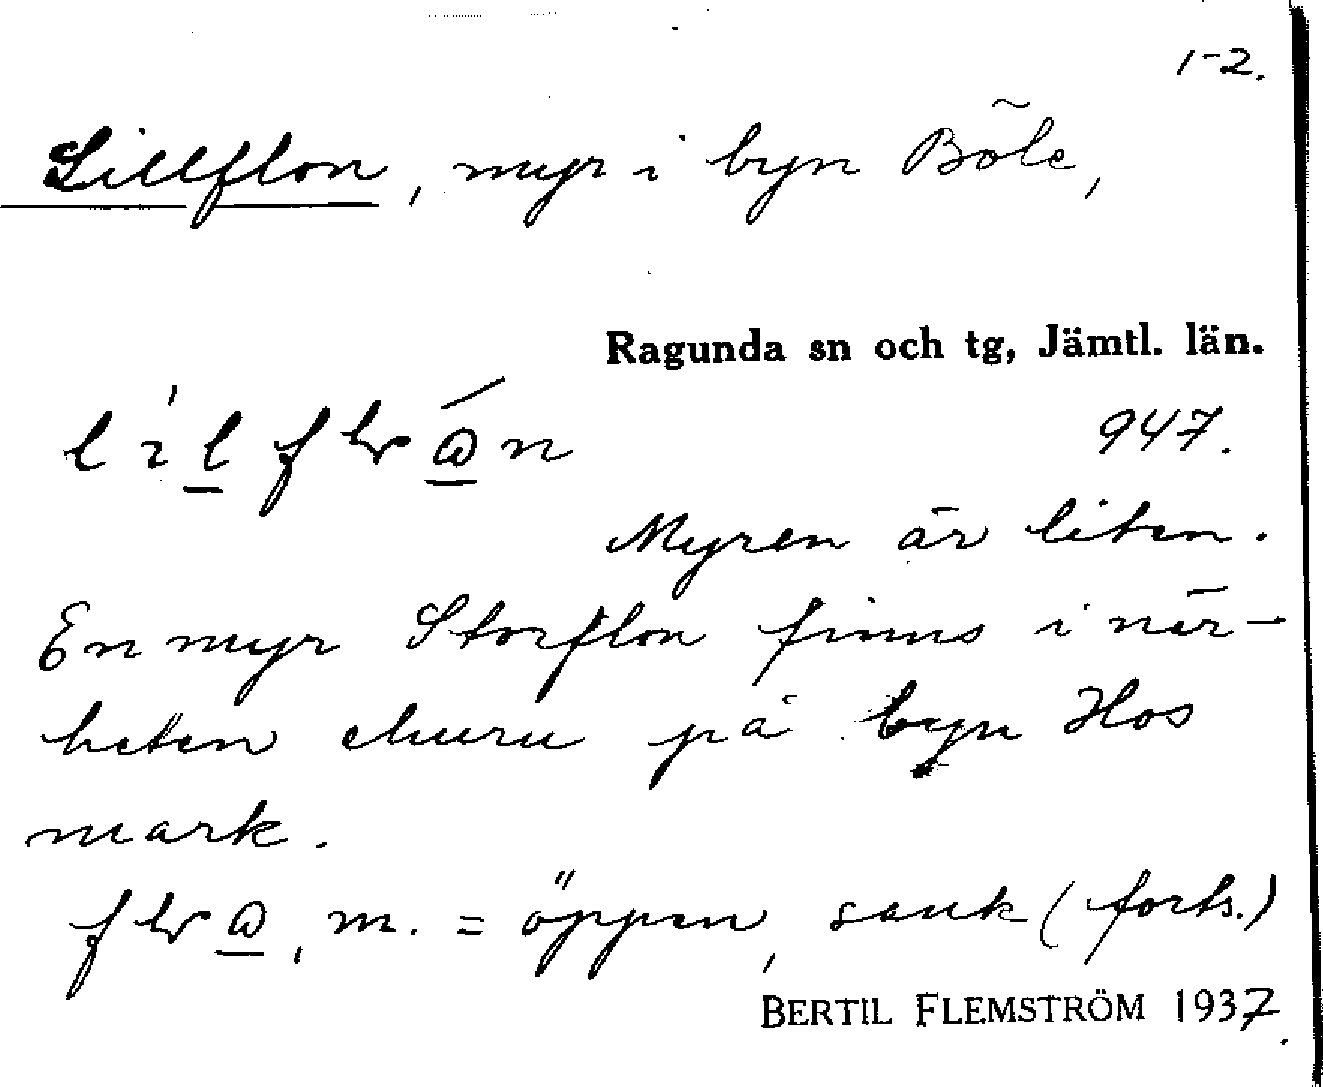 1-2.
Lillflon, myr i byn Böle,
Ragunda sn och tg, Jämtl. län.
947.
Myren är liten.
En myr Storflon finns i när-
heten ehuru på byn Hos
mark.
m. = öppen, sank (forts.)
BERTIL FLEMSTRÖM 1937.